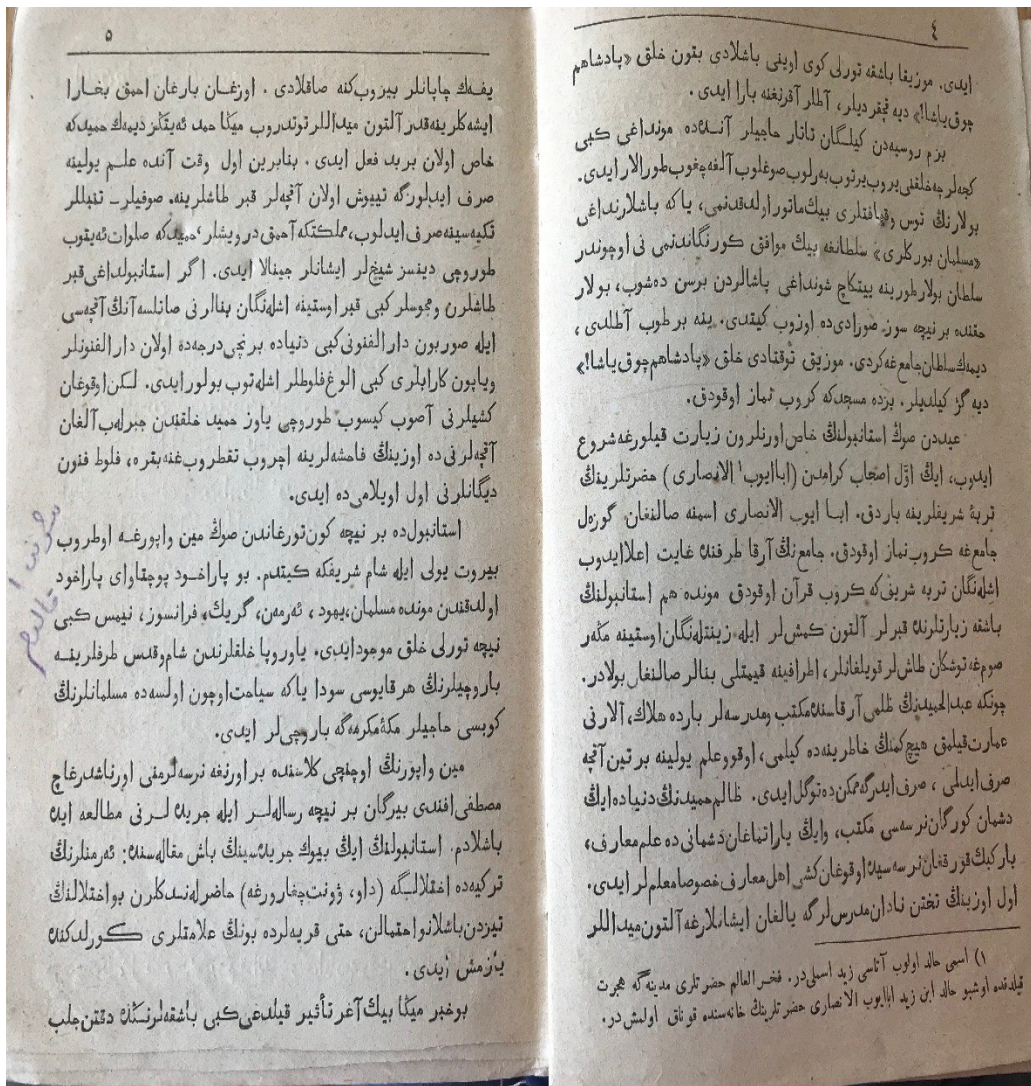 ٤
ایدی. موزیقا باشقه تورلی کوی اوینی باشلادی بتون خلق «پادشاهم
چوق یاشا!» دیه قچقردیلر، آطلر آقرنغنه بارا ایدی.
بزم روسیه‌دن کیلگان تاتار حاجیلر آنده‌ده مونداغی کبی
کچه‌لرچه خلقنی یروب یرتوب به‌رلوب صوغلوب آلغه چغوب طورالار ایدی.
بولارنڭ توس وقیافتلری بیك ماتور اولدقدنمی، یا‌که باشلارنداغی
«مسلمان بورکلری» سلطانغه بیك موافق کورنگاندنمی نی اوچوندر
سلطان بولار طورینه ییتکاچ شونداغی پاشالردن برسن ده‌شوب، بولار
حقنده بر نیچه سوز صورادی‌ده اوزوب کیتدی. ینه بر طوب آطلدی،
دیمك سلطان جامع‌غه کردی. موزیق توقتادی خلق «پادشاهم چوق یاشا!»
دیه گز کیلدیلر. بزده مسجدکه کروب نماز اوقودق.
عیددن صوڭ استانبولنڭ خاص اورنلرون زیارت قیلورغه شروع
ایدوب، ایڭ اوّل اصحاب کرامدن (ابا ایوب¹ الانصاری) حضرتلرینڭ
تربۀ شریفلرینه باردق. ابا ایوب الانصاری اسمنه صالنغان گوزەل
جامع‌غه کروب نماز اوقودق. جامع‌نڭ آرقا طرفنده غایت اعلا ایدوب
اشله‌نگان تربه شریف‌که کروب قرآن اوقودق. مونده هم استانبولنڭ
باشقه زیارتلرنده قبرلر آلتون کمش‌لر ایله زینتله‌نگان اوستینه مڭه‌ر
صوم‌غه توشکان طاش‌لر قویلغانلر، اطرافینه قیمتلی بنالر صالنغان بولادر.
چونکه عبدالحمیدنڭ ظلمی آرقاسنده مکتب ومدرسه‌لر بارده هلاك، آلارنی
عمارت قیلمق هیچ کمنڭ خاطرینه‌ده کیلمی، اوقو و علم یولینه بر تین آقچه
صرف ایدلمی، صرف ایدرگه ممکن‌ده توگل ایدی. ظالم حمیدنڭ دنیاده ایڭ
دشمان کورگان نرسه‌سی مکتب، وایڭ یاراتماغان دشمانی‌ده علم معارف،
بارکبڭ قورقغان نرسه‌سیده اوقوغان کشی اهل معارف خصوصا معلم‌لر ایدی.
اول اوزینڭ تختن نادان مدرس‌لرگه یالغان ایشانلارغه آلتون میداللر
۱) اسمی خالد اولوب آتاسی زید اسملی‌در. فخرالعالم حضرتلری مدینه‌گه هجرت
قیلدقده اوشبو خالد ابن زید ابا ایوب الانصاری حضرتلرینڭ خانه‌سنده قوناق اولمش‌در.
٥
یفه‌ك چاپانلر بیروب‌کنه صاقلادی. اوزغان بارغان احمق بخارا
ایشه‌کلرینه‌قدر آلتون میداللر توتدروب میڭا حمد ئه‌یتڭز دیمه‌ك حمیدکه
خاص اولان بر بد فعل ایدی. بنابرین اول وقت آنده علم یولینه
صرف ایدلورگه تییوش اولان آقچه‌لر قبر طاشلرینه. صوفیلر ـ تنبللر
تکیه‌سینه صرف ایدلوب، مملکتکه آحمق درویشلر، حمیدکه صلوات ئه‌یتوب
طوروچی دینسز شیخ‌لر ایشانلر جینالا ایدی. اگر استانبولداغی قبر
طاشلرن و مجوسلر کبی قبر اوستینه اشله‌نگان بنالرنی صاتلسه آنڭ آقچه‌سی
ایله صوربون دارالفنونی کبی دنیاده برنچی درجه‌ده اولان دارالفنونلر
ویاپون کارابلری کبی الوغ فلوطلر اشله‌توب بولور ایدی. لکن اوقوغان
کشیلرنی آصوب کیسوب طوروچی یاوز حمید خلقندن جبرله‌ب آلغان
آقچه‌لرنی‌ده اوزینڭ فاحشه‌لرینه اچروب تقطروب‌غنه بتره، فلوط فنون
دیگانلرنی اول اویلامی‌ده ایدی.
استانبول‌ده بر نیچه کون تورغاندن صوڭ مین واپورغه اوطروب
بیروت یولی ایله شام شریفکه کیتدم. بو پاراخود پوچتاوای پاراخود
اولدقندن مونده مسلمان، یهود، ئه‌رمه‌ن، گریك، فرانسوز، نیمس کبی
نیچه تورلی خلق موجود ایدی. یاوروپا خلقلرندن شام وقدس طرفلرینه
باروچیلرنڭ هر قایوسی سودا یا‌که سیاحت اوچون اولسه‌ده مسلمانلرنڭ
کوبسی حاجیلر مکۀ مکرمه‌گه باروچی‌لر ایدی.
مین واپورنڭ اوچنچی کلاسنده بر اورنغه نرسه‌لرمنی اورناشدرغاچ
مصطفی افندی بیرگان بر نیچه رساله‌لر ایله جریده‌لرنی مطالعه ایده
باشلادم. استانبولنڭ ایڭ بیوك جریده‌سینڭ باش مقاله‌سنده: ئه‌رمنلرنڭ
ترکیه‌ده اختلالگه (داو، ؤونت چغارورغه) حاضرله‌ندکلرن بو اختلالنڭ
تیزدن باشلانو احتمالن، حتی قریه‌لرده بونڭ علامتلری کورلدکنده
یازمش ایدی.
بو خبر میڭا بیك آغر تأثیر قیلدغی کبی باشقه‌لرنڭده دقتن جلب